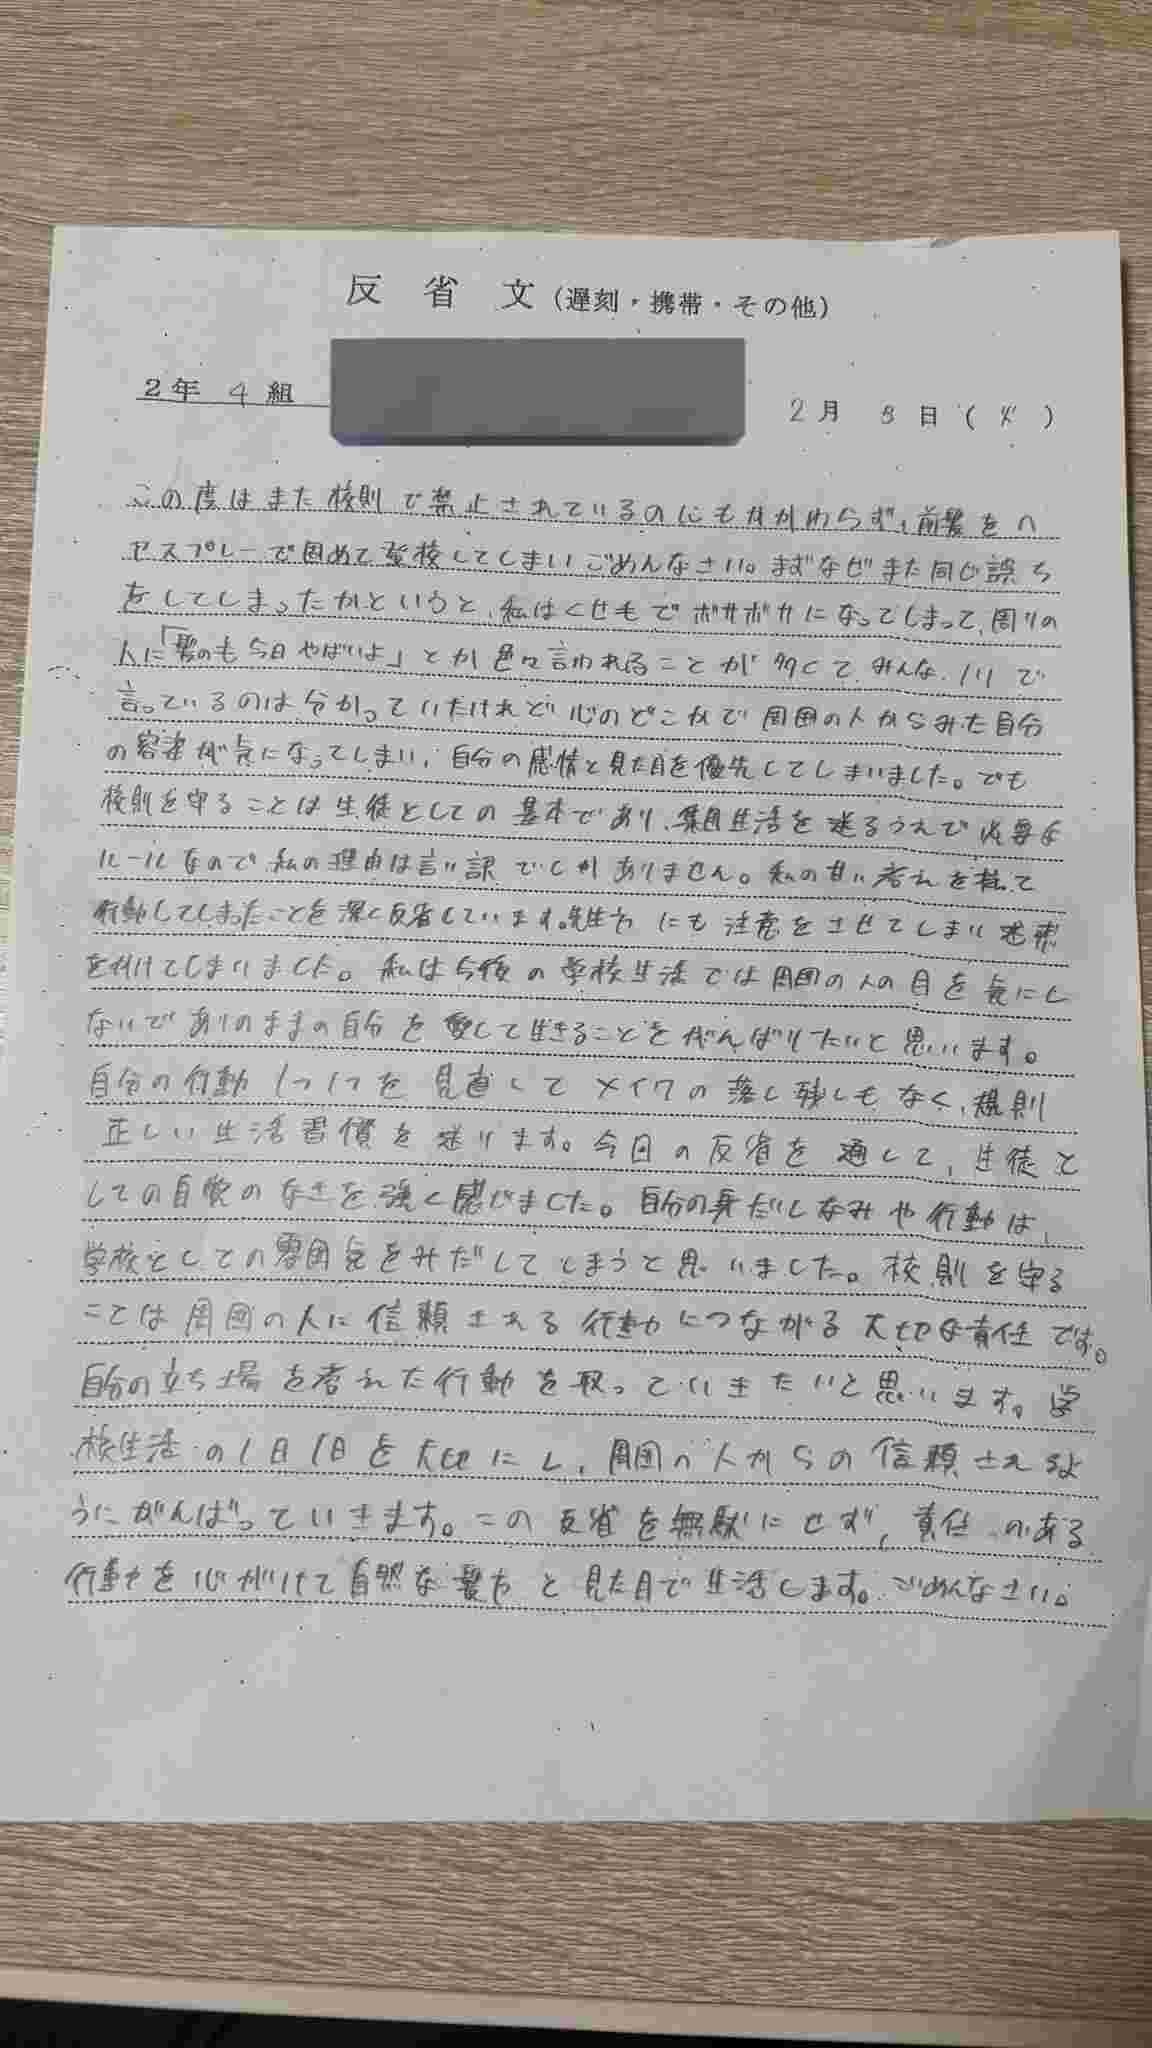 反省文（遅刻・携帯・その他）
2年 4 組
2月 3日（火）
この度はまた校則で禁止されているのにもかかわらず、前髪をヘ
アスプレーで固めて登校してしまいごめんなさい。まずなぜまた同じ誤ち
をしてしまったかというと、私はくせもでボサボサになってしまって、周りの
人に「髪のも今日やばいよ」とか色々言われることが多くて、みんなノリで
言っているのは分かっていたけれど心のどこかで周囲の人からみた自分
の容姿が気になってしまい、自分の感情と見た目を優先してしまいました。でも
校則を守ることは生徒としての基本であり、集団生活を送るうえで必要な
ルールなので、私の理由は言い訳でしかありません。私の甘い考えを持って
行動してしまったことを深く反省しています。先生方にも注意をさせてしまい迷惑
をかけてしまいました。私は今後の学校生活では周囲の人の目を気にし
ないでありのままの自分を愛して生きることをがんばりたいと思います。
自分の行動1つ1つを見直してメイクの落し残しもなく、規則
正しい生活習慣を送ります。今回の反省を通して、生徒と
しての自覚のなさを強く感じました。自分の身だしなみや行動は、
学校としての雰囲気をみだしてしまうと思いました。校則を守る
ことは周囲の人に信頼される行動につながる大切な責任です。
自分の立ち場を考えた行動を取っていきたいと思います。学
校生活の1日1日を大切にし、周囲の人からの信頼されるよ
うにがんばっていきます。この反省を無駄にせず、責任のある
行動を心がけて自然な髪方と見た目で生活します。ごめんなさい。